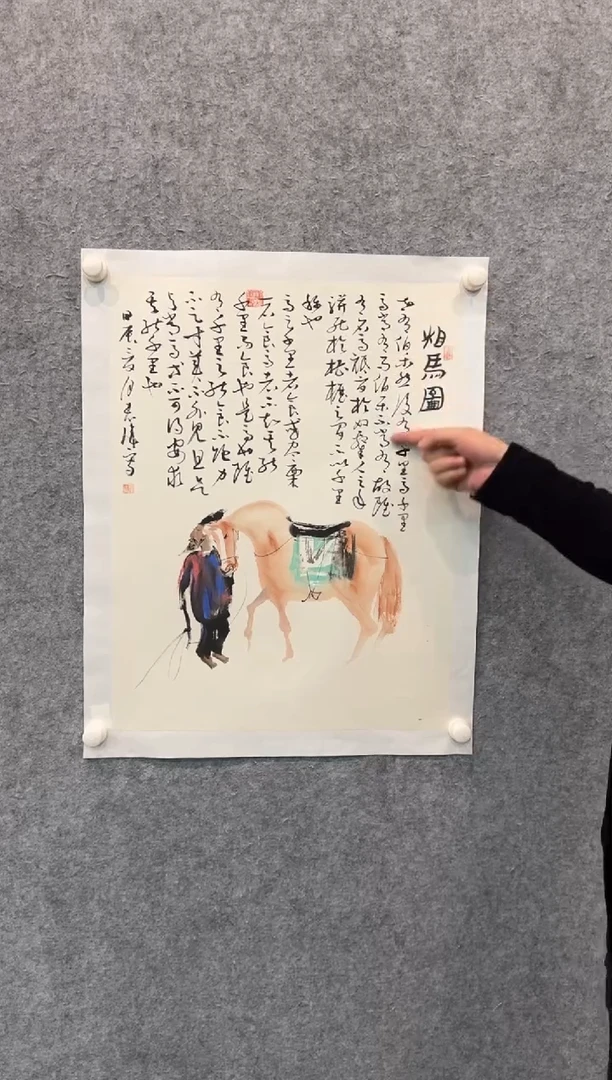 相馬圖
世有伯乐然後有千里馬千里
馬常有而伯乐不常有故雖
有名馬祇辱於奴隸人之手
駢死於槽櫪之間不以千里
稱也
馬之千里者一食或盡粟
一石食馬者不知其能
千里而食也是馬也雖
有千里之能食不飽力
不足才美不外見且欲
與常馬等不可得安求
其能千里也
甲辰 月 寫